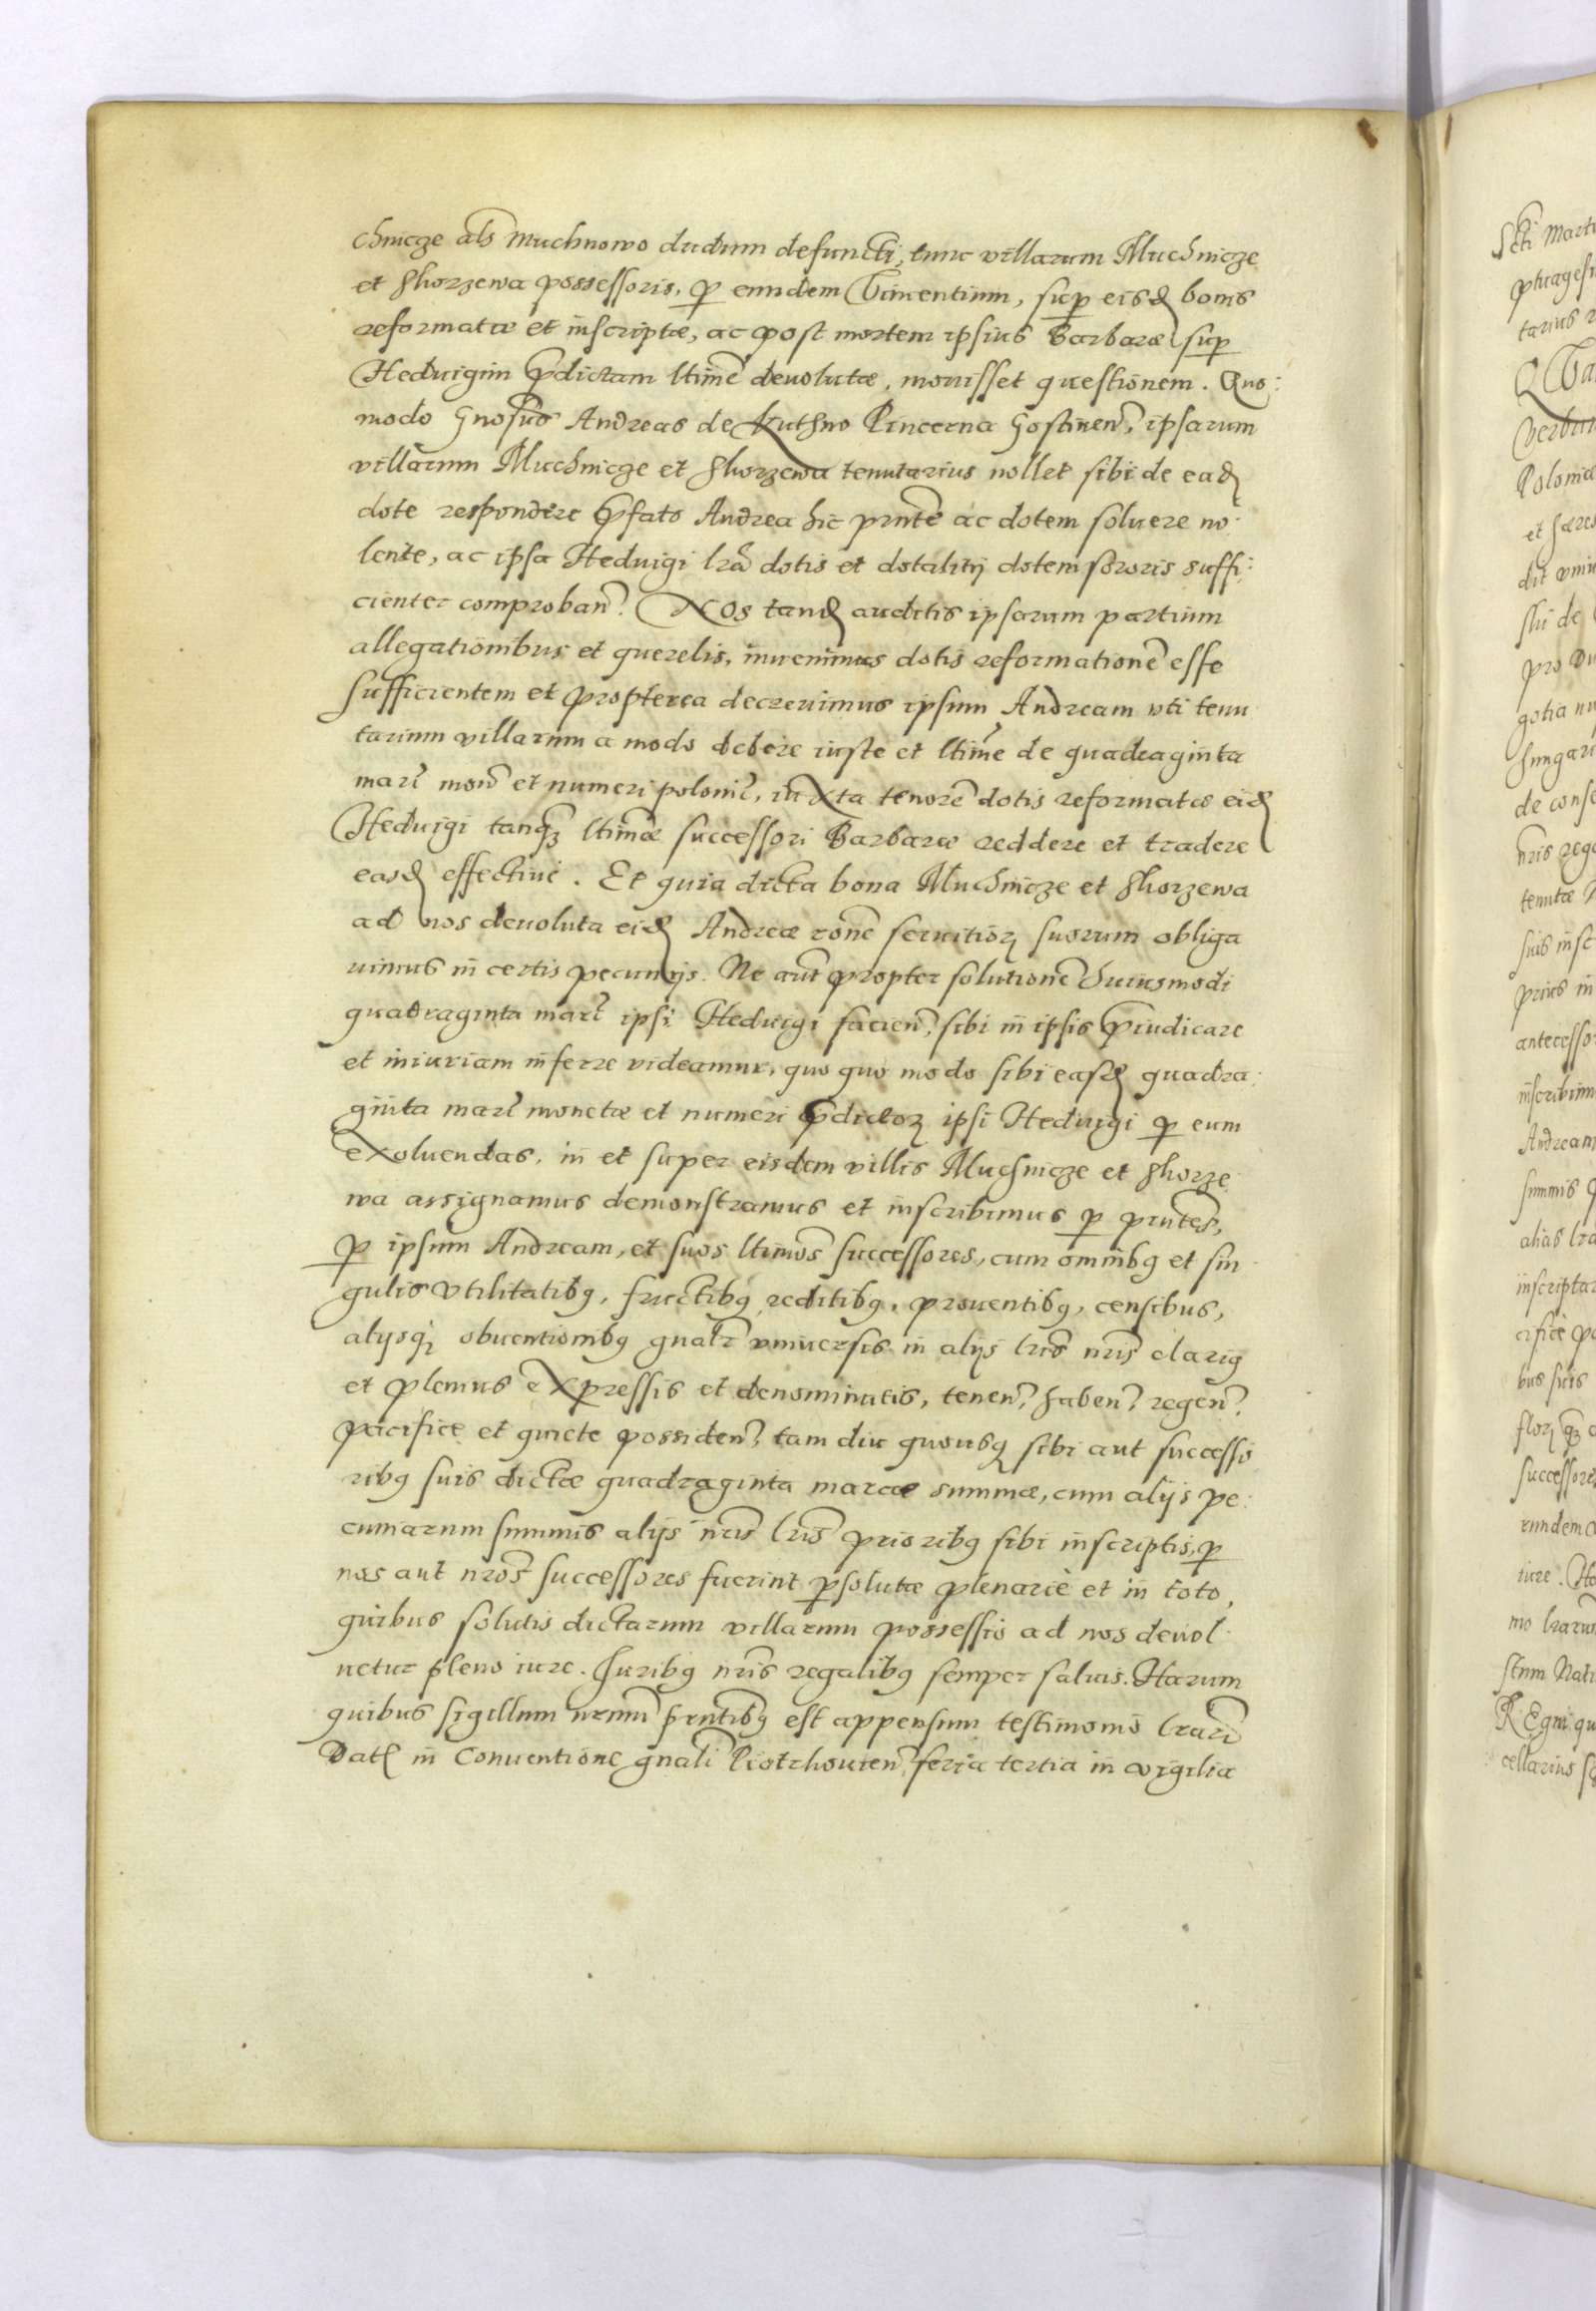 chnicze als Muchnowo dudum defuncti, tunc villarum Muchnicze
et Shorzewa possessoris, p eundem Vincentium, sup eisd bonis
reformatæ et inscriptæ, ac post mortem ipsius Barbaræ sup
Heduigim pdictam ltime deuolutæ, mouisset questionem. Quo:
modo Gnosus Andreas de Kuthno Pincerna Gostinen, ipsarum
villarum Muchnicze et Shorzewa tenutarius nollet sibi de ead
dote respondere pfato Andrea hic pnte ac dotem soluere no:
lente, ac ipsa Heduigi lra dotis et dotalitij dotem sororis suffi:
cienter comproban. Nos tand auditis ipsarum partium
allegationibus et querelis, inuenimus dotis reformatione esse
sufficientem et propterea decreuimus ipsum Andream vti tenu
tarium villarum a modo debere iuste et ltime de quadraginta
marc mon et numeri polonic, iuxta tenore dotis reformatæ eid
Heduigi tanqz ltimæ successori Barbaræ reddere et tradere
easd effectiue. Et quia dicta bona Muchnicze et Shorzewa
ad nos deuoluta eid Andreæ rone seruitior suorum obliga
uimus in certis pecunijs. Ne aut propter solutione huiusmodi
quadraginta marc ipsi Heduigi facien, sibi in ipsis piudicare
et iniuriam inferre videamur, quo quo modo sibi easd quadra:
ginta marc monetæ et numeri pdictor ipsi Heduigi p eum
exoluendas, in et super eisdem villis Muchnicze et Shorze
wa assignamus demonstramus et inscribimus p pntes,
p ipsum Andream, et suos ltimos successores, cum omnibq et sin
gulis vtilitatibq, fructibq reditibq, prouentibq, censibus,
alijsq obuentionibq gnalr vniuersis in alijs lris nris clariq
et plenius expressis et denominatis, tenen, haben, regen,
pacifice et quiete possiden, tam diu quousq sibi aut successo
ribq suis dictæ quadraginta marcæ summæ, cum alijs pe:
cuniarum summis alijs nris lris prioribq sibi inscriptis, p
nos aut nros successores fuerint psolutæ plenariè et in toto,
quibus solutis dictarum villarum possessio ad nos deuol
uetur pleno iure. Juribq nris regalibq semper saluis. Harum
quibus sigillum nrum pntibq est appensum testimonio lrarum
Datt in Conuentione gnali Piotrhouien, feria tertia in vigilia